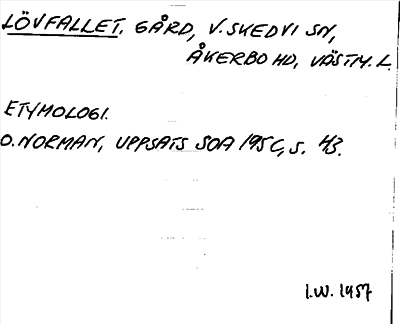 LÖVFALLET, GÅRD, V. SKEDVI SN,
ÅKERBO HD, VÄSTM. L.
ETYMOLOGI.
O. NORMAN, UPPSATS SOA 1950, S. 43.
I.W. 1957